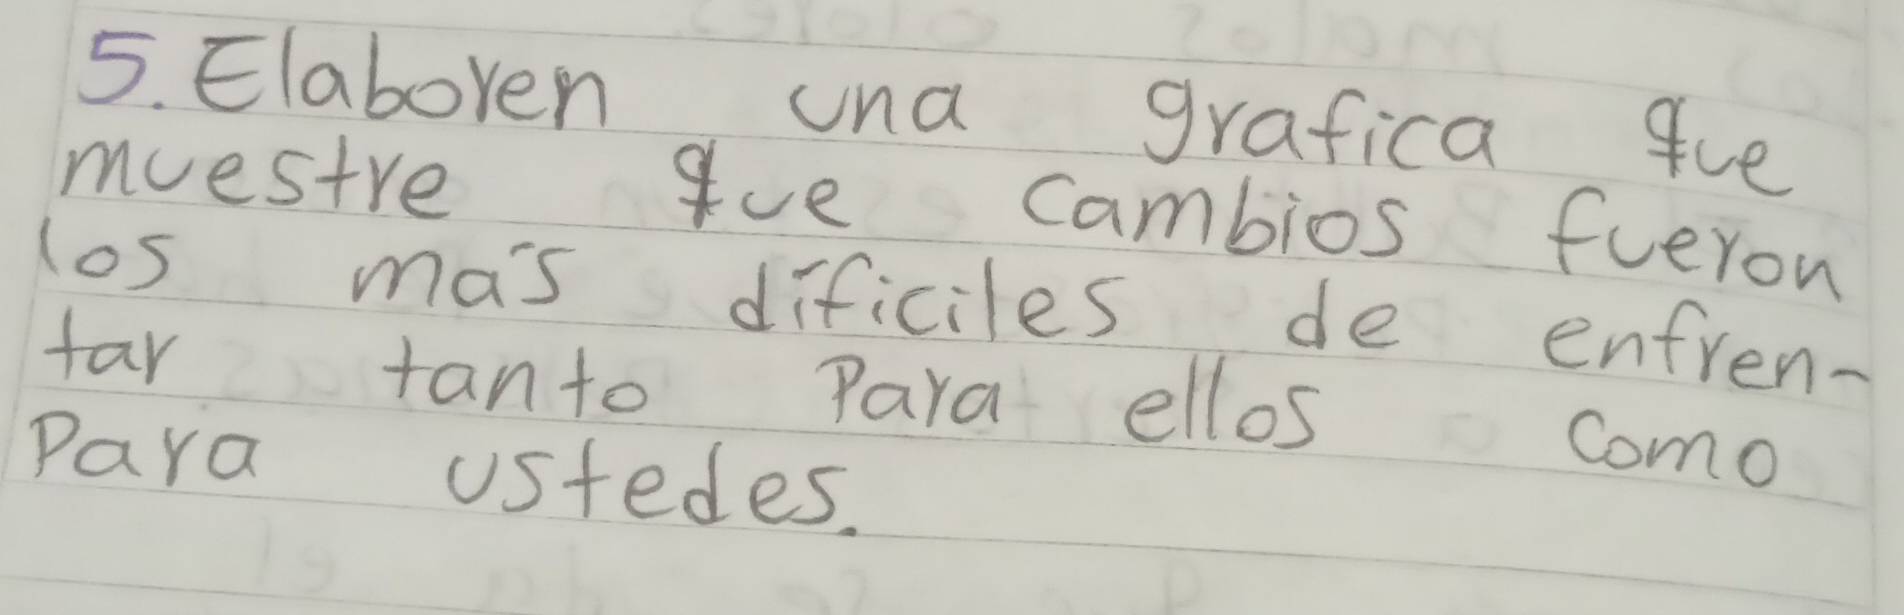 5. Elaboren una grafica que
muestre que cambios fueron
los más díficiles de enfren-
tar tanto Para ellos como
Para ustedes.